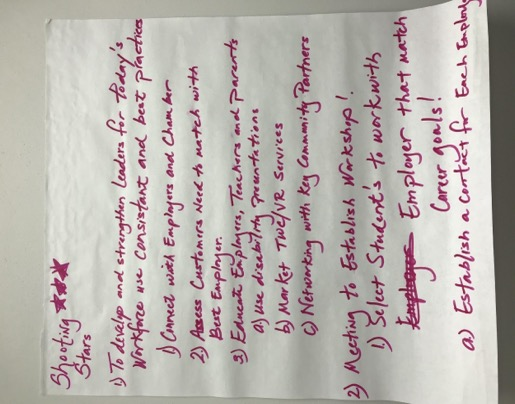 Shooting ★★★
Stars
1) To develop and strengthen Leaders for Today's
Workforce use consistant and best practices
1) Connect with Employers and Chamber
2) Assess Customers Need to match with
Best Employer.
3) Educate Employers, Teachers and parents
a) use disability presentations
b) Market TWC/VR Services
c) Networking with Key Community Partners
2) Meeting to Establish Workshop!
1) Select Student's to work with
Employer that match
Career goals!
a) Establish a contact for Each Employ